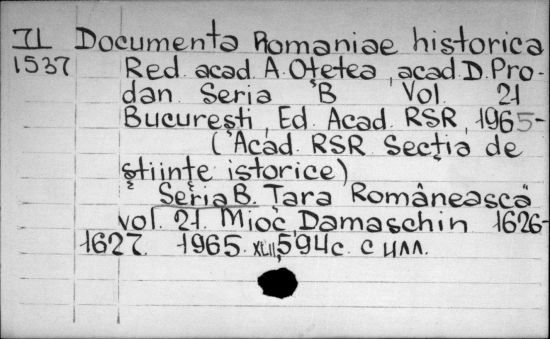 II Documenta Romaniae historica
1537 Red. acad. A. Oțetea, acad. D. Pro-
dan. Seria B Vol. 21
București, Ed. Acad. RSR, 1965-
(Acad. RSR Secția de
științe istorice)
Seria B. Țara Românească
vol. 21. Mioc Damaschin 1626-
1627. 1965. XLII, 594 c. с илл.